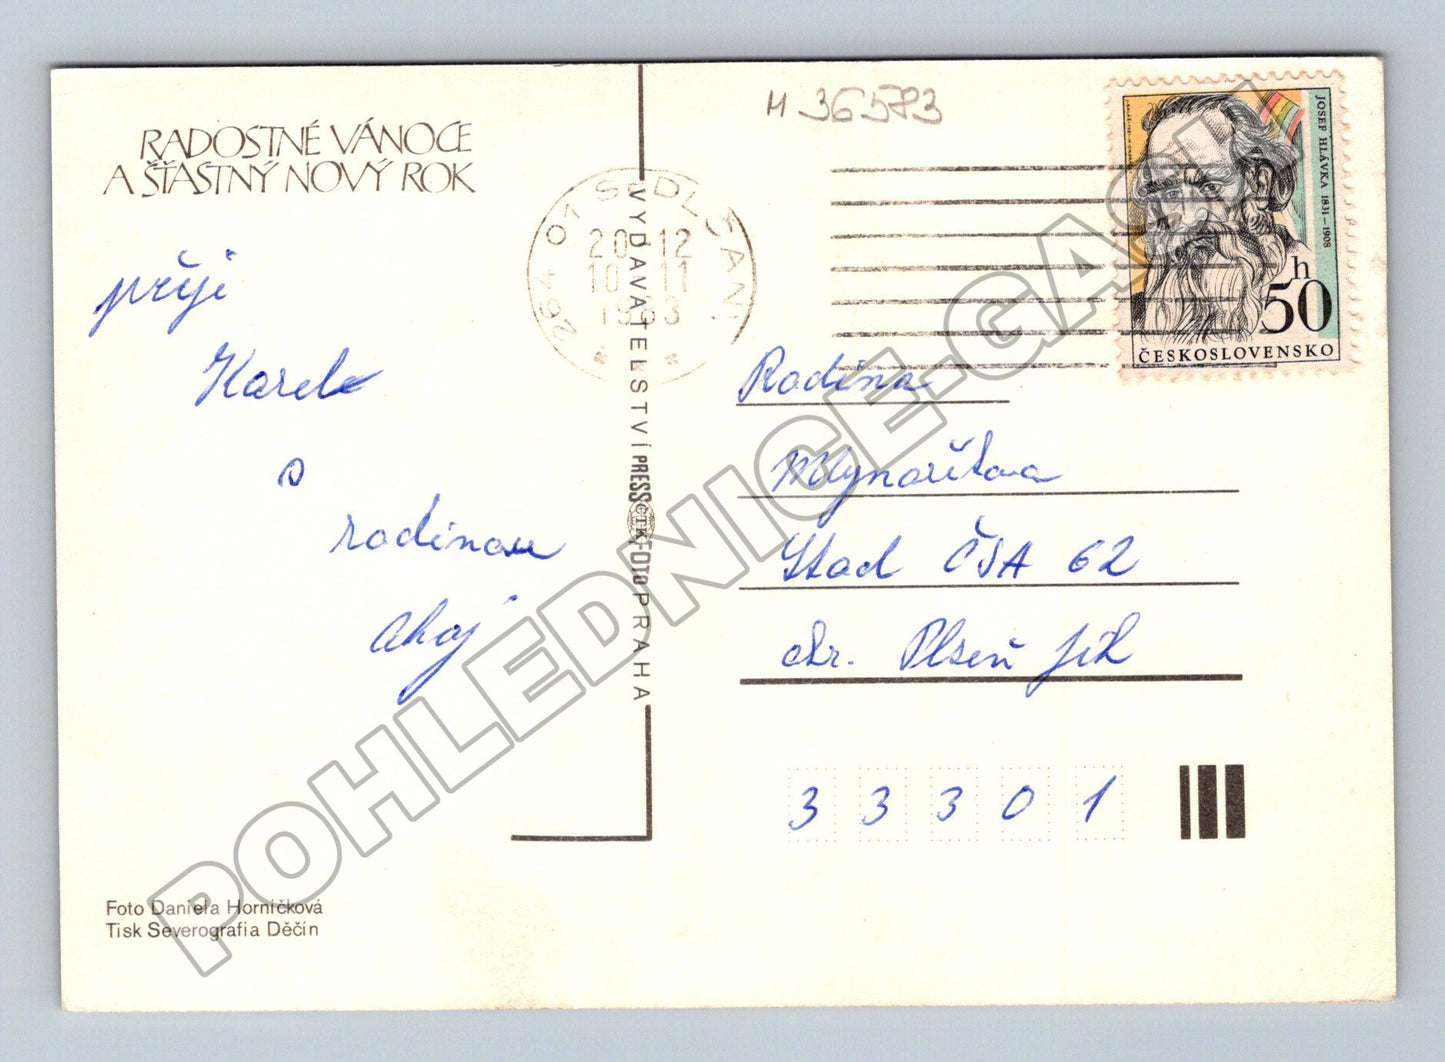 M 36573
RADOSTNÉ VÁNOCE
A ŠŤASTNÝ NOVÝ ROK
přeji
Karel
s
rodinou
ahoj
264 01 SEDLČANY
20.12
10-11
1983
VYDAVATELSTVÍ PRESSFOTO PRAHA
ČTK
JOSEF HLÁVKA 1831–1908
h
50
ČESKOSLOVENSKO
Rodina
Mlynaříkova
Stod ČSA 62
okr. Plzeň jih
33301
Foto Daniela Horníčková
Tisk Severografia Děčín
POHLEDNICE-GASH